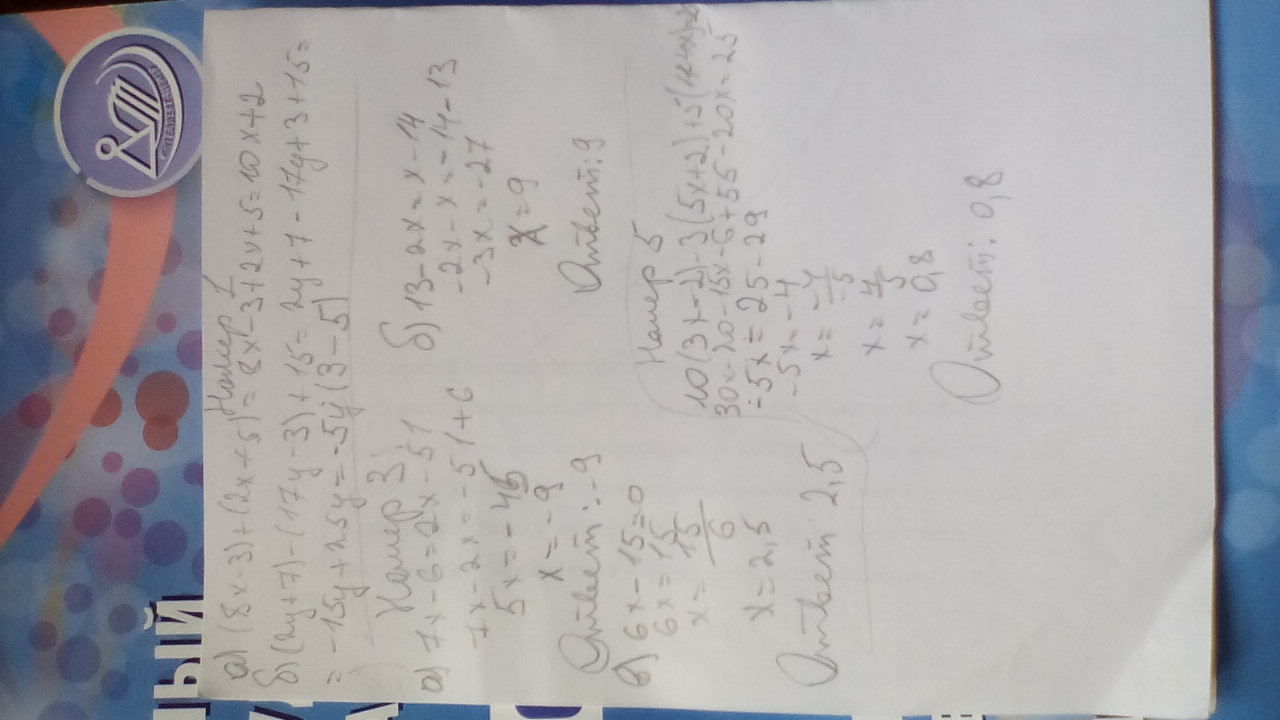 Номер 1
а) (8x-3)+(2x+5)=8x-3+2x+5=10x+2
б) (2y+7)-(17y-3)+15=2y+7-17y+3+15=
=-15y+25y=-5y(3-5)
Номер 3
а) 7x-6=2x-51
7x-2x=-51+6
5x=-45
x=-9
Ответ: -9
б) 13-2x=x-14
-2x-x=-14-13
-3x=-27
x=9
Ответ: 9
в) 6x-15=0
6x=15
x=15/6
x=2,5
Ответ 2,5
Номер 5
10(3x-2)-3(5x+2)+5(11-4x)=25
30x-20-15x-6+55-20x=25
-5x=25-29
-5x=-4
x=-4/-5
x=4/5
x=0,8
Ответ: 0,8
ЫЙ